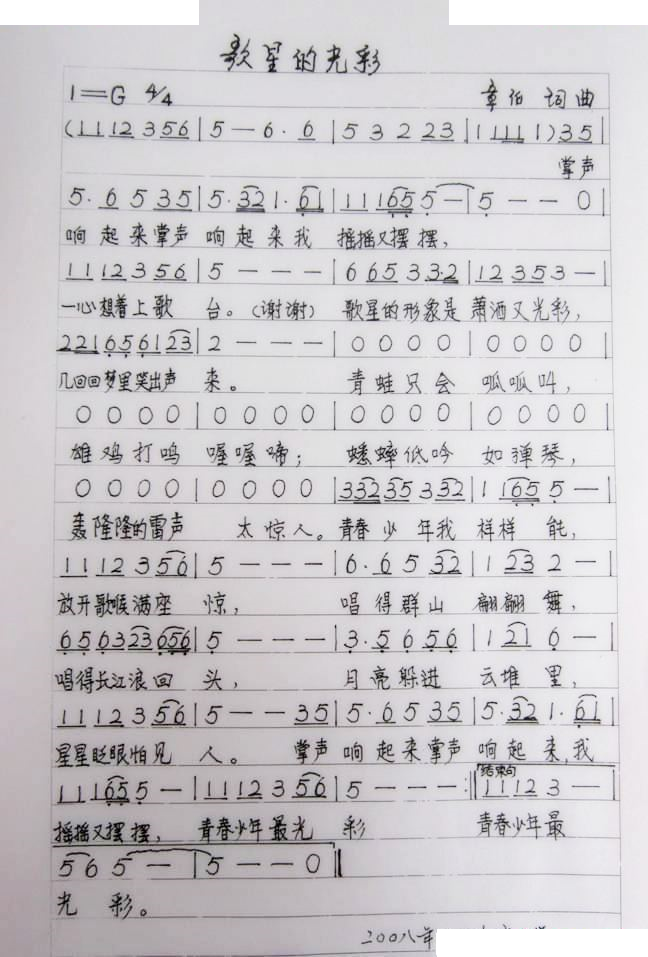 歌星的光彩
1=G 4/4 章伯 词曲
(1 1 1 2 3 5 6 | 5 — 6 · 6 | 5 3 2 2 3 | 1 1 1 1 1) 3 5 |
掌声
5 · 6 5 3 5 | 5 · 3 2 1 · 6 1 | 1 1 1 6 5 5 — | 5 — — 0 |
响起来掌声 响起来我 摇摇又摆摆，
1 1 1 2 3 5 6 | 5 — — — | 6 6 5 3 3 · 2 | 1 2 3 5 3 — |
一心想着上歌 台。（谢谢） 歌星的形象是 萧洒又光彩，
2 2 1 6 5 6 1 2 3 | 2 — — — | 0 0 0 0 | 0 0 0 0 |
几回回梦里笑出声 来。 青蛙只会 呱呱叫，
0 0 0 0 | 0 0 0 0 | 0 0 0 0 | 0 0 0 0 |
雄鸡打鸣 喔喔啼； 蟋蟀低吟 如弹琴，
0 0 0 0 | 0 0 0 0 | 3 3 2 3 5 3 3 2 | 1 1 6 5 5 — |
轰隆隆的雷声 太惊人。青春少年我 样样能，
1 1 1 2 3 5 6 | 5 — — — | 6 · 6 5 3 2 | 1 2 3 2 — |
放开歌喉满座 惊， 唱得群山 翩翩舞，
6 5 6 3 2 3 6 5 6 | 5 — — — | 3 · 5 6 5 6 | 1 2 1 6 — |
唱得长江浪回 头， 月亮躲进 云堆里，
1 1 1 2 3 5 6 | 5 — — 3 5 | 5 · 6 5 3 5 | 5 · 3 2 1 · 6 1 |
星星眨眼怕见 人。 掌声 响起来掌声 响起来，我
结束句
1 1 1 6 5 5 — | 1 1 1 2 3 5 6 | 5 — — — :‖ 1 1 1 2 3 — |
摇摇又摆摆， 青春少年最光 彩 青春少年最
5 6 5 — | 5 — — 0 ‖
光彩。
二00八年